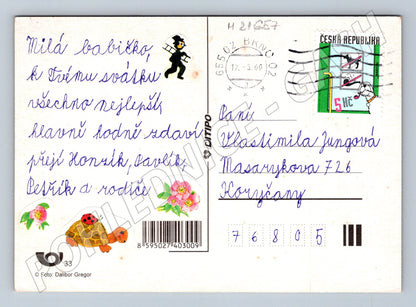 Milá babičko,
k Tvému svátku
všechno nejlepší,
hlavně hodně zdaví
přijí Honzík, Pavlík,
Petřík a rodiče
M 21657
655 62 BRNO 02
ČESKÁ REPUBLIKA
5 Kč
Paní
Vlastimila Jungová
Masarykova 726
Koryčany
76805
DITIPO
8595027403009
33
© Foto: Dalibor Gregor
POHLEDNICE-GROH